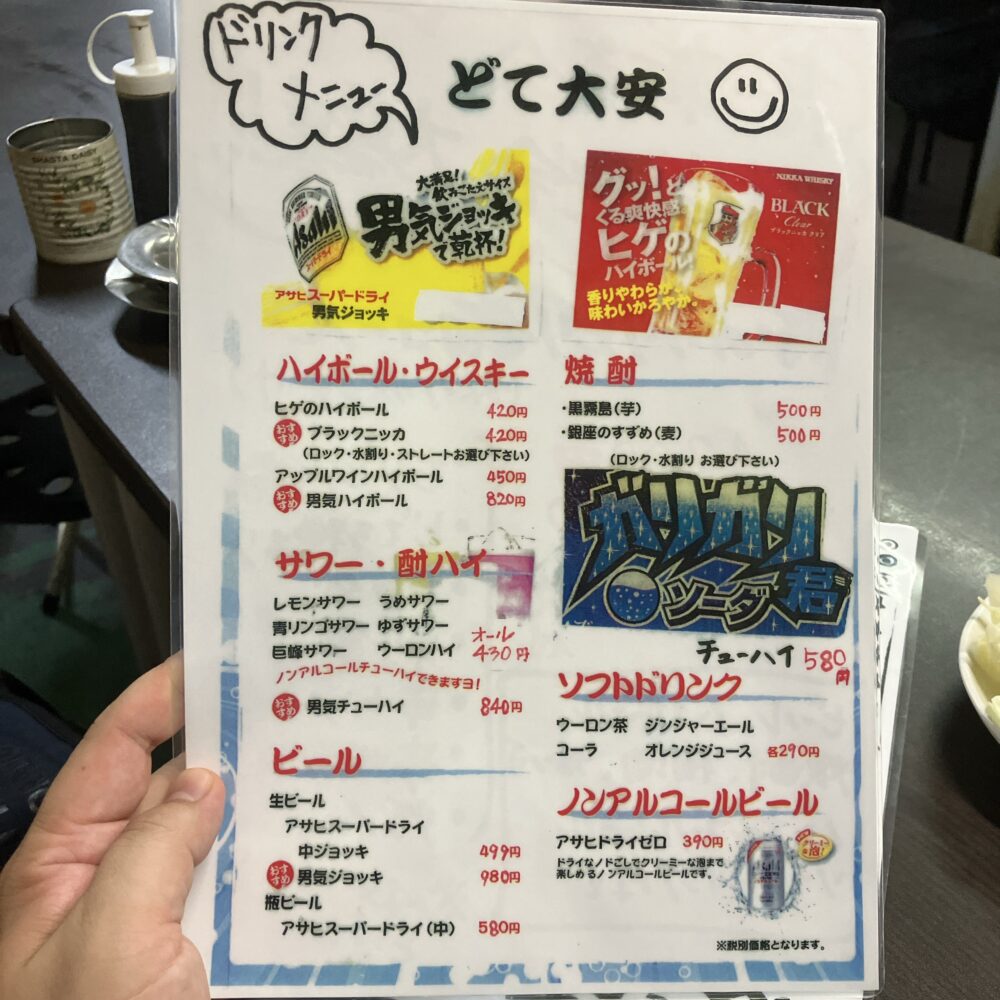 ドリンク
メニュー
どて大安
SHASTA DAISY
大満足!
飲みごたえサイズ
男気ジョッキ
で乾杯!
Asahi
アサヒスーパードライ
男気ジョッキ
NIKKA WHISKY
BLACK
Clear
ブラックニッカ クリア
グッ!と
くる爽快感。
ヒゲの
ハイボール!
香りやわらか。
味わいかろやか。
ハイボール・ウイスキー
ヒゲのハイボール 420円
おすすめ ブラックニッカ 420円
(ロック・水割り・ストレートお選び下さい)
アップルワインハイボール 450円
おすすめ 男気ハイボール 820円
サワー・酎ハイ
レモンサワー うめサワー
青リンゴサワー ゆずサワー
巨峰サワー ウーロンハイ オール430円
ノンアルコールチューハイできますヨ!
おすすめ 男気チューハイ 840円
ビール
生ビール
アサヒスーパードライ
中ジョッキ 499円
おすすめ 男気ジョッキ 980円
瓶ビール
アサヒスーパードライ(中) 580円
焼酎
・黒霧島(芋) 500円
・銀座のすずめ(麦) 500円
(ロック・水割り お選び下さい)
ガリガリ君
ソーダ
チューハイ 580円
ソフトドリンク
ウーロン茶 ジンジャーエール
コーラ オレンジジュース 各290円
ノンアルコールビール
アサヒドライゼロ 390円
ドライなノドごしでクリーミーな泡まで
楽しめるノンアルコールビールです。
※税別価格となります。